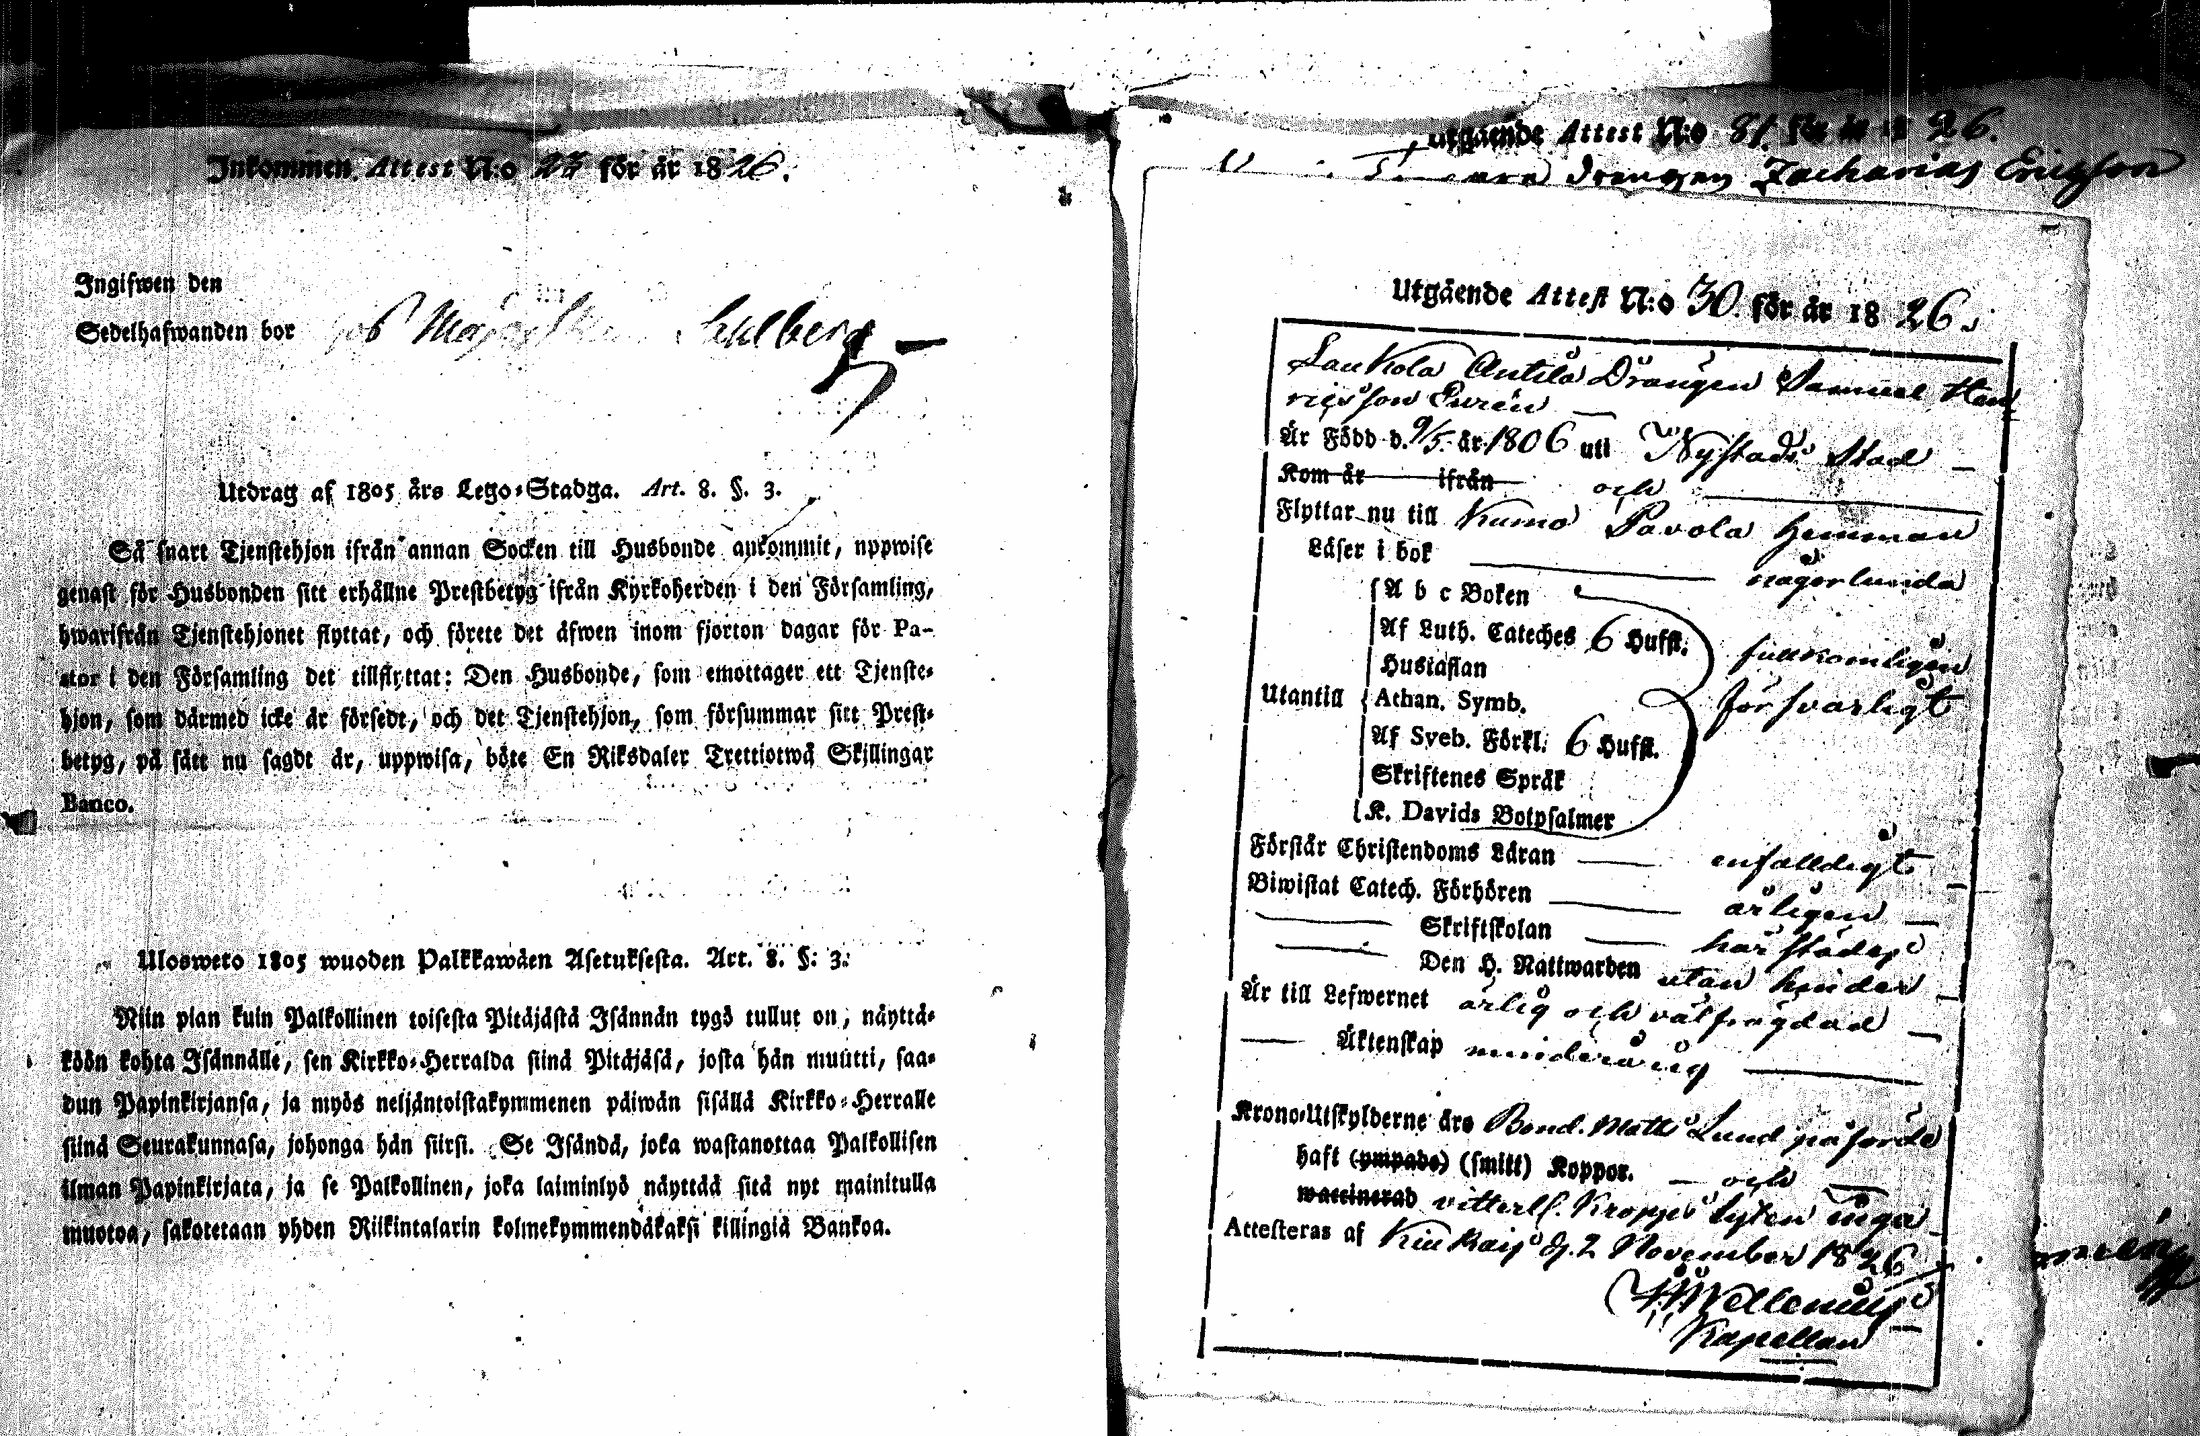 Inkommen Attest N:o 23 för år 1826.
Ingifwen den
Sedelhafwanden bor hos
Utdrag af 1805 års Lego-Stadga. Art. 8. §. 3.
Så snart Tjenstehjon ifrån annan Socken till Husbonde ankommit, uppwise
genast för Husbonden sitt erhållne Prestbetyg ifrån Kyrkoherden i den Församling,
hwarifrån Tjenstehjonet flyttat, och förete det äfwen inom fjorton dagar för Pa-
stor i den Församling det tillflyttat: Den Husbonde, som emottager ett Tjenste-
hjon, som därmed icke är försedt, och det Tjenstehjon, som försummar sitt Prest-
betyg, på sätt nu sagdt är, uppwisa, böte En Riksdaler Trettiotwå Skillingar
Banco.
Ulosweto 1805 wuoden Palkkawäen Asetuksesta. Art. 8. §. 3.
Niin pian kuin Palkollinen toisesta Pitäjästä Isännän tygö tullut on, näyttä-
köön kohta Isännälle, sen Kirkko-Herralda siinä Pitäjäsä, josta hän muutti, saa-
dun Papinkirjansa, ja myös neljäntoistakymmenen päiwän sisällä Kirkko-Herralle
siinä Seurakunnasa, johonga hän siirsi. Se Isändä, joka wastanottaa Palkollisen
ilman Papinkirjata, ja se Palkollinen, joka laiminlyö näyttää sitä nyt mainitulla
muotoa, sakotetaan yhden Riikintalarin kolmekymmendäkaksi killingiä Bankoa.
Utgående Attest N:o 81. för år 1826.
drengen Zacharias Ericsson
Utgående Attest N:o 30. för år 1826.
Laukola Antila Drängen Samuel Hen
ricsson Purén
Är Född d. 9/5. år 1806 uti Nystads Stad
Kom år ifrån och
Flyttar nu till Kumo Pavola Hemman
Läser i bok någorlunda
A b c Boken
Af Luth. Cateches 6 Hufst. fullkomligen
Hustaflan
Utantill Athan. Symb. försvarligt
Af Sveb. Förkl. 6 Hufst.
Skriftenes Språk
K. Davids Botpsalmer
Förstår Christendoms Läran enfalldigt
Biwistat Catech. Förhören årligen
Skriftskolan härstädes
Den H. Nattwarden utan hinder
Är till Lefwernet ärlig och välfrägdad
Äktenskap minderårig
Krono-Utskylderne äro Bond. Matts Lund påförde
haft (ympade) (smitt) Koppor. och
waccinerad vitterl. Kropps lyten inga
Attesteras af Kiukais d. 2 November 1826
Wellenius
Kapellan